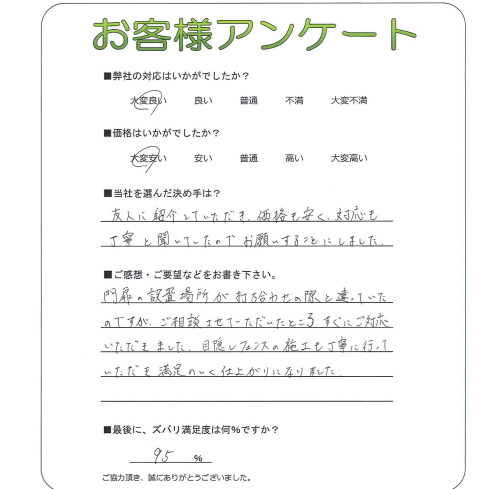 お客様アンケート
■弊社の対応はいかがでしたか？
大変良い 良い 普通 不満 大変不満
■価格はいかがでしたか？
大変安い 安い 普通 高い 大変高い
■当社を選んだ決め手は？
友人に紹介していただき、価格も安く、対応も
丁寧と聞いていたのでお願いすることにしました。
■ご感想・ご要望などをお書き下さい。
門扉の設置場所が打ち合わせの際と違っていた
のですが、ご相談させていただいたところすぐにご対応
いただきました。目隠しフェンスの施工も丁寧に行って
いただき満足のいく仕上がりになりました。
■最後に、ズバリ満足度は何％ですか？
95 ％
ご協力頂き、誠にありがとうございました。